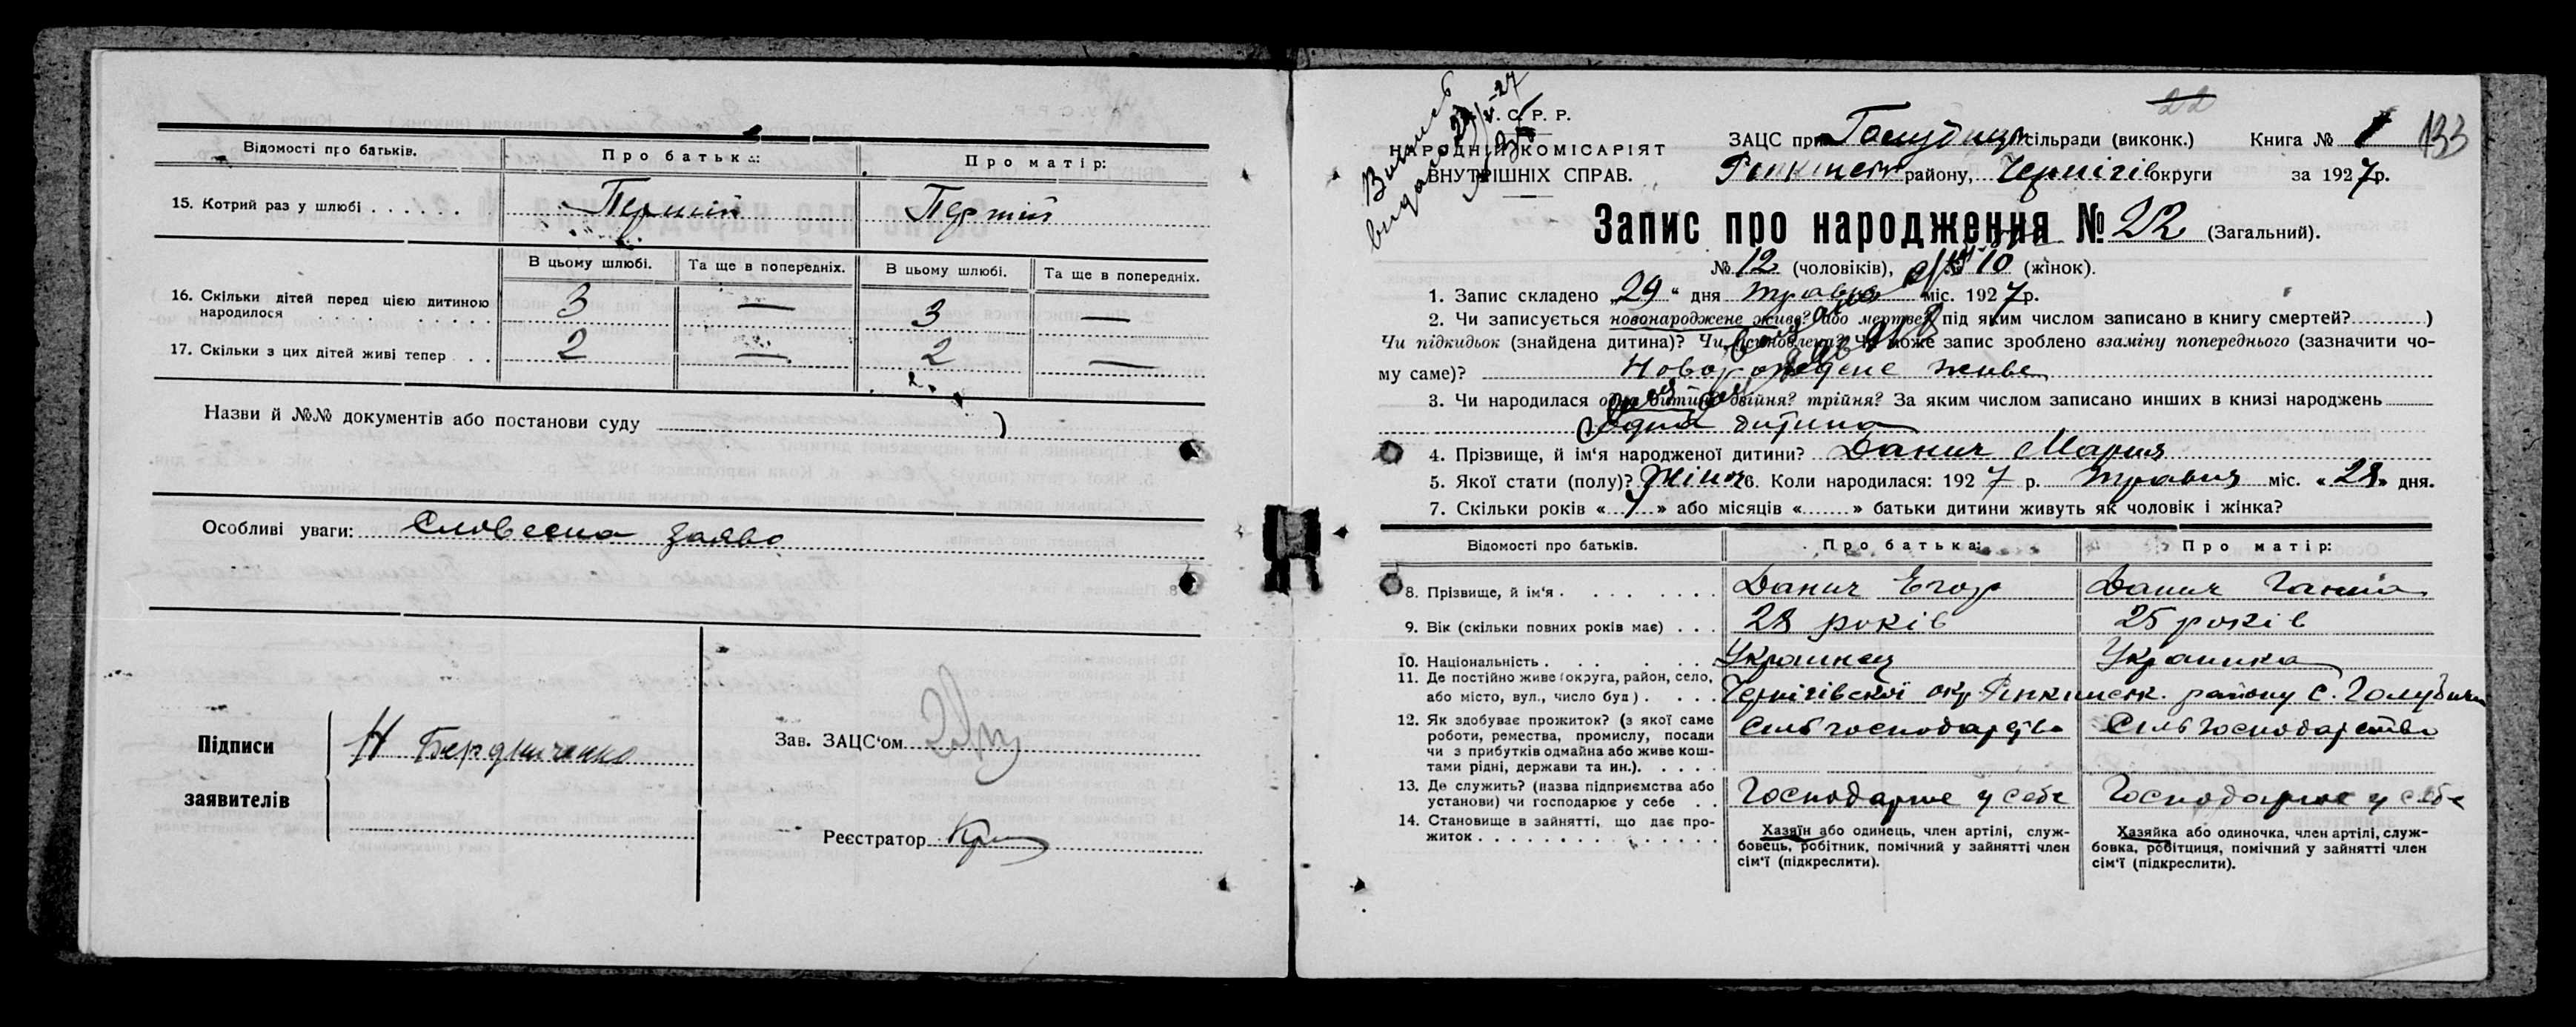 Відомості про батьків.
Про батька:
Про матір:
15. Котрий раз у шлюбі
Перший
Перший
В цьому шлюбі.
Та ще в попередніх.
В цьому шлюбі.
Та ще в попередніх.
16. Скільки дітей перед цією дитиною
народилося
3
—
3
—
17. Скільки з цих дітей живі тепер
2
—
2
—
Назви й №№ документів або постанови суду
Особливі уваги: Словесна заява
Підписи
заявителів
Н Бердниченко
Зав. ЗАЦС‘ом
Реєстратор
22
У. С. Р. Р.
НАРОДНІЙ КОМІСАРІЯТ
ВНУТРІШНІХ СПРАВ.
ЗАЦС при сільради (виконк.) Книга № 1
133
району, Чернігів округи за 1927р.
Запис про народження № 22 (Загальний).
№ 12 (чоловіків), № 10 (жінок).
1. Запис складено „29“ дня травня міс. 1927р.
2. Чи записується новонароджене живе? або мертве? під яким числом записано в книгу смертей? )
Чи підкидьок (знайдена дитина)? Чи усиновлена? Чи може запис зроблено взаміну попереднього (зазначити чо-
му саме)? Новороджене живе
3. Чи народилася одна дитина двійня? трійня? За яким числом записано инших в книзі народжень
одна дитина
4. Прізвище, й ім‘я народженої дитини? Данич Мария
5. Якої стати (полу)? Жіноч 6. Коли народилася: 1927 р. травня міс. «28» дня.
7. Скільки років « » або місяців « » батьки дитини живуть як чоловік і жінка?
Відомості про батьків.
Про батька:
Про матір:
8. Прізвище, й ім‘я
Данич Егор
Данич Ганна
9. Вік (скільки повних років має)
28 років
25 років
10. Національність
Украинец
Украинка
11. Де постійно живе (округа, район, село,
або місто, вул., число буд)
Чернігівскої окр. району с. Голубичи
12. Як здобуває прожиток? (з якої саме
роботи, ремества, промислу, посади
чи з прибутків одмайна або живе кош-
тами рідні, держави та ин.).
Сильгосподарство
Сильгосподарство
13. Де служить? (назва підприємства або
установи) чи господарює у себе
Господарює у себе
Господарює у себе
14. Становище в зайнятті, що дає про-
житок
Хазяїн або одинець, член артілі, служ-
бовець, робітник, помічний у зайнятті член
сім‘ї (підкреслити).
Хазяйка або одиночка, член артілі, служ-
бовка, робітциця, помічний у зайнятті член
сім‘ї (підкреслити).